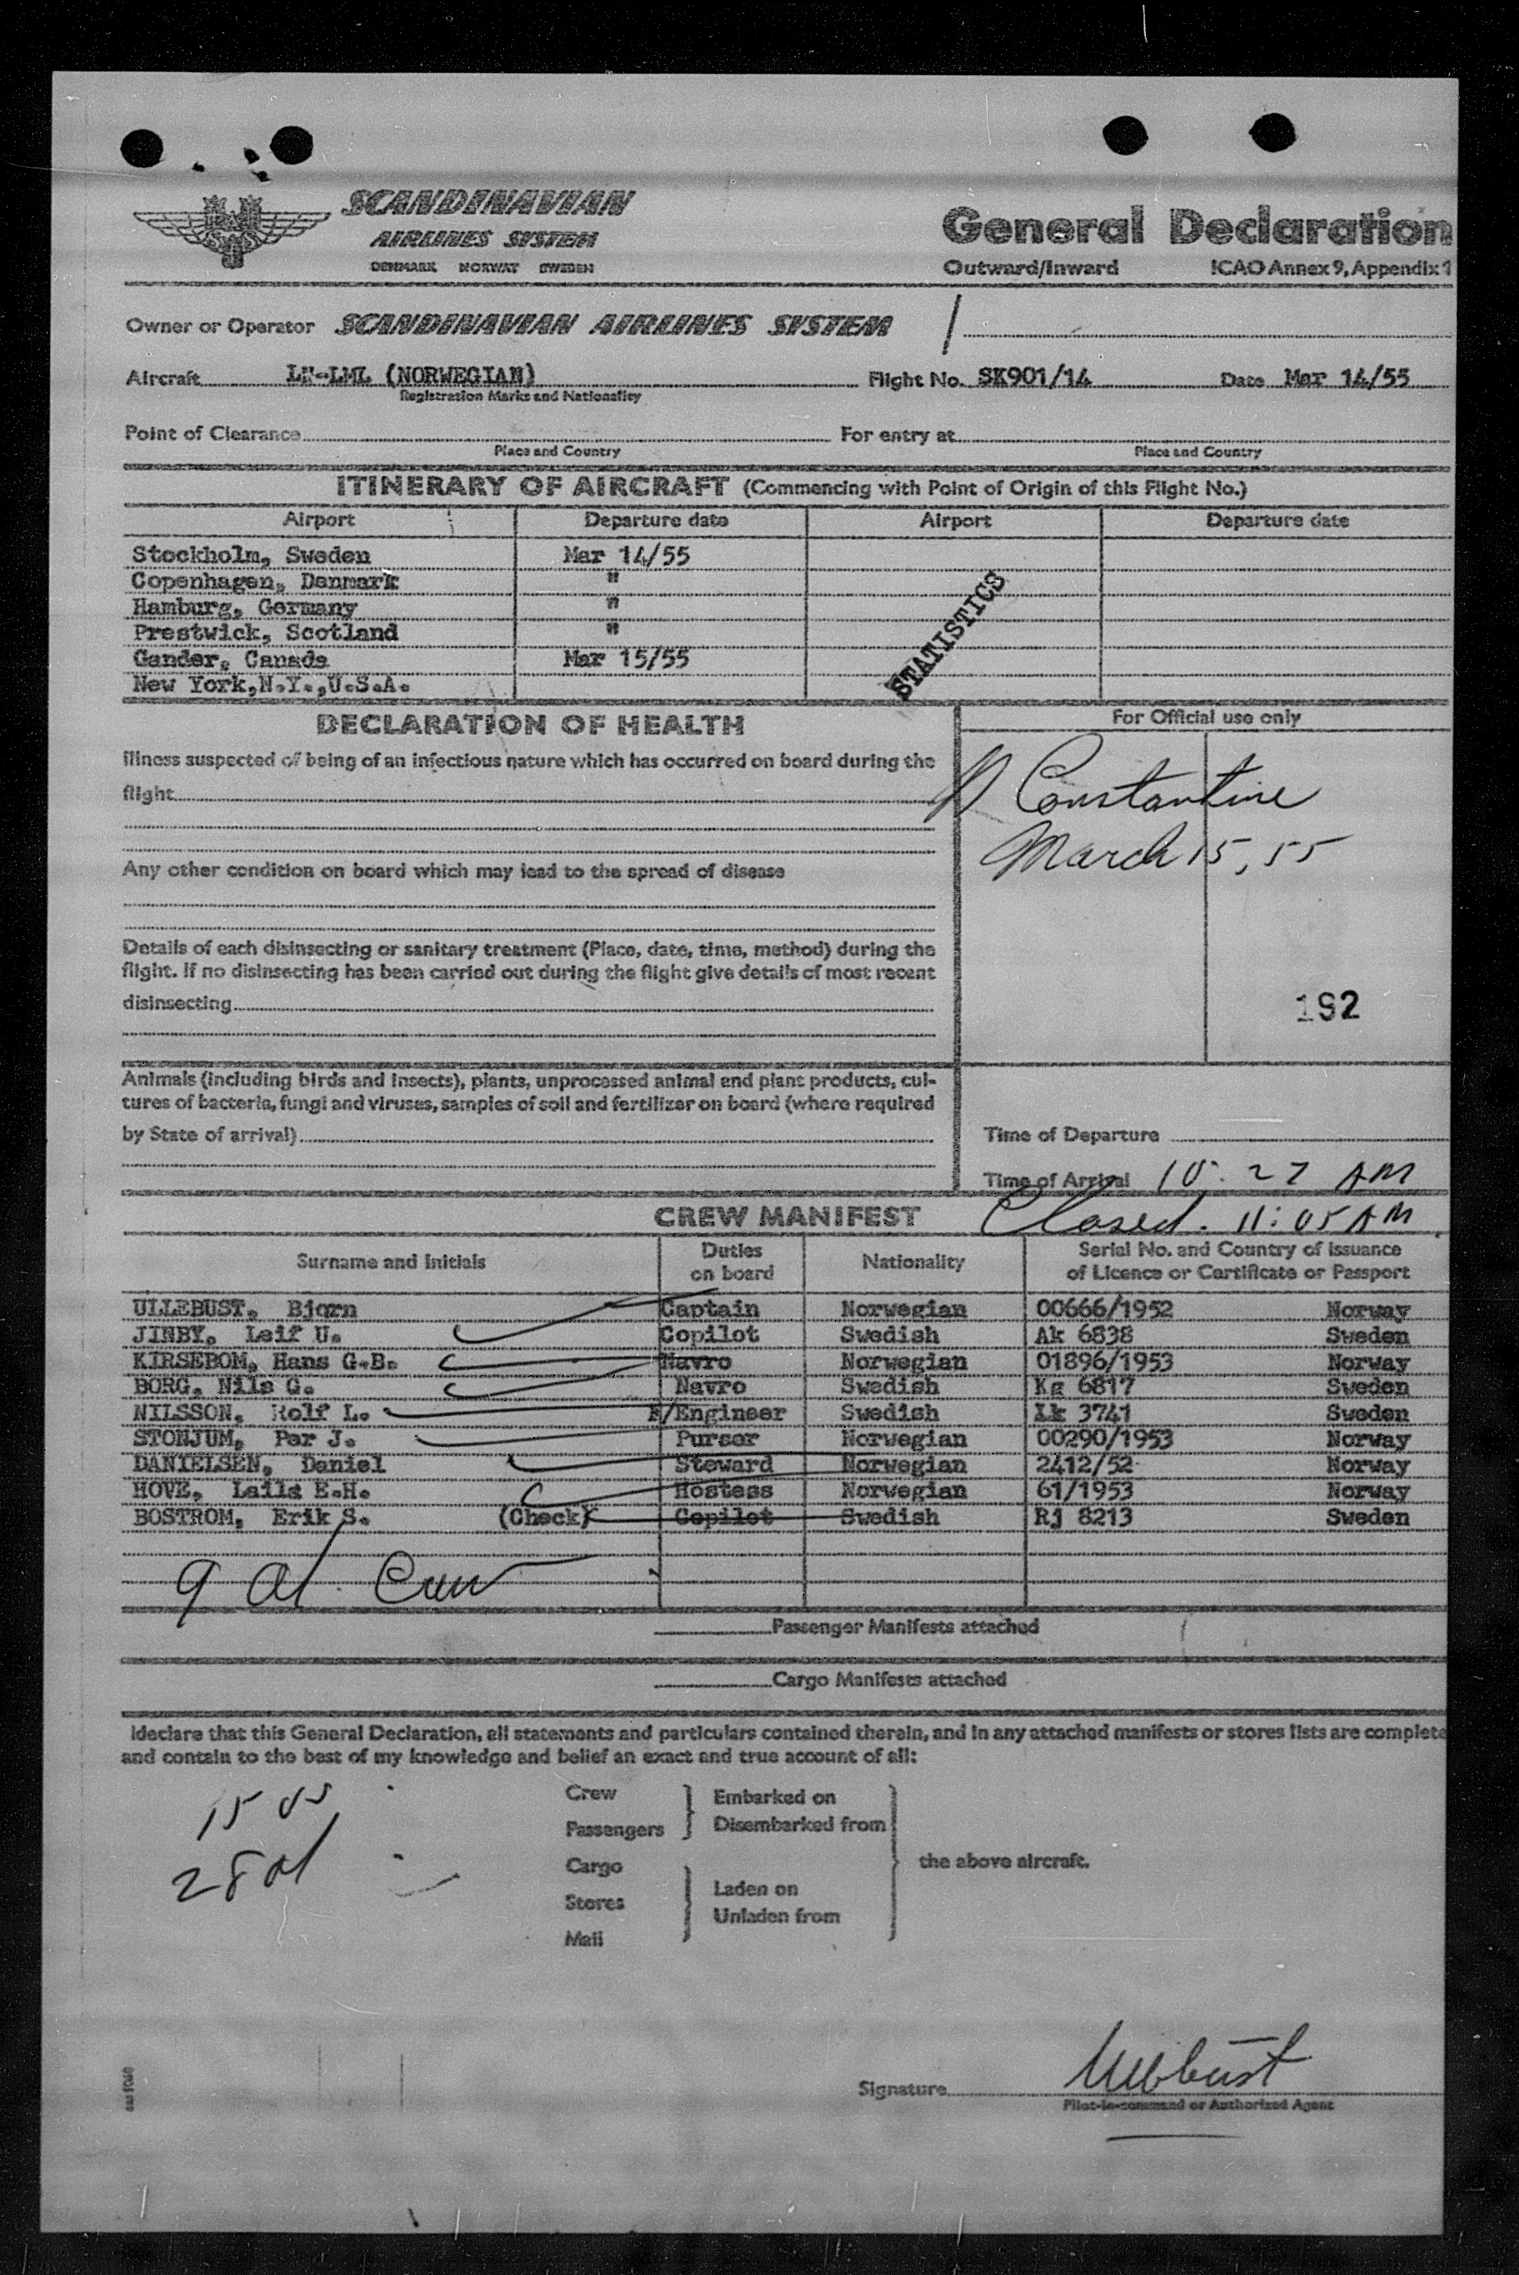 SCANDINAVIAN
AIRLINES SYSTEM
DENMARK NORWAY SWEDEN
General Declaration
Outward/Inward ICAO Annex 9, Appendix 1
Owner or Operator SCANDINAVIAN AIRLINES SYSTEM
Aircraft LN-LML (NORWEGIAN) Flight No. SK901/14 Date Mar 14/55
Registration Marks and Nationality
Point of Clearance For entry at
Place and Country Place and Country
ITINERARY OF AIRCRAFT (Commencing with Point of Origin of this Flight No.)
Airport Departure date Airport Departure date
Stockholm, Sweden Mar 14/55
Copenhagen, Denmark "
Hamburg, Germany "
Prestwick, Scotland "
Gander, Canada Mar 15/55
New York,N.Y.,U.S.A.
STATISTICS
DECLARATION OF HEALTH
For Official use only
Illness suspected of being of an infectious nature which has occurred on board during the
flight
Constantine
March 15, 55
Any other condition on board which may lead to the spread of disease
Details of each disinsecting or sanitary treatment (Place, date, time, method) during the
flight. If no disinsecting has been carried out during the flight give details of most recent
disinsecting
192
Animals (including birds and insects), plants, unprocessed animal and plant products, cul-
tures of bacteria, fungi and viruses, samples of soil and fertilizer on board (where required
by State of arrival)
Time of Departure
Time of Arrival 10:27 AM
CREW MANIFEST Closed. 11:05 AM
Surname and Initials Duties on board Nationality Serial No. and Country of Issuance of Licence or Certificate or Passport
ULLEBUST, Bjorn Captain Norwegian 00666/1952 Norway
JINBY, Leif U. Copilot Swedish Ak 6838 Sweden
KIRSEBOM, Hans G.B. Navro Norwegian 01896/1953 Norway
BORG, Nils G. Navro Swedish Kg 6817 Sweden
NILSSON, Rolf L. F/Engineer Swedish Lk 3741 Sweden
STONJUM, Per J. Purser Norwegian 00290/1953 Norway
DANIELSEN, Daniel Steward Norwegian 2412/52 Norway
HOVE, Laila E.H. Hostess Norwegian 61/1953 Norway
BOSTROM, Erik S. (Check) Copilot Swedish Rj 8213 Sweden
9 Al. Crew
Passenger Manifests attached
Cargo Manifests attached
I declare that this General Declaration, all statements and particulars contained therein, and in any attached manifests or stores lists are complete
and contain to the best of my knowledge and belief an exact and true account of all:
15 US
28 Al
Crew
Passengers
Embarked on
Disembarked from
Cargo
Stores
Mail
Laden on
Unladen from
the above aircraft.
Signature Ullebust
Pilot-in-command or Authorized Agent